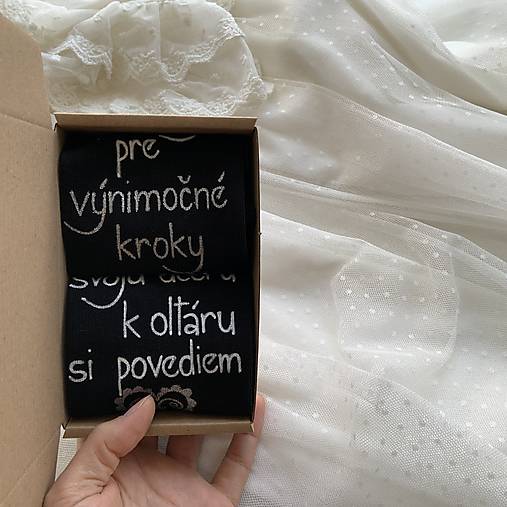 pre
výnimočné
kroky
svoju dcéru
k oltáru
si povediem